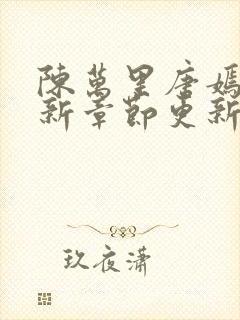 陳萬里唐嫣
新章節更新
玖夜瀟